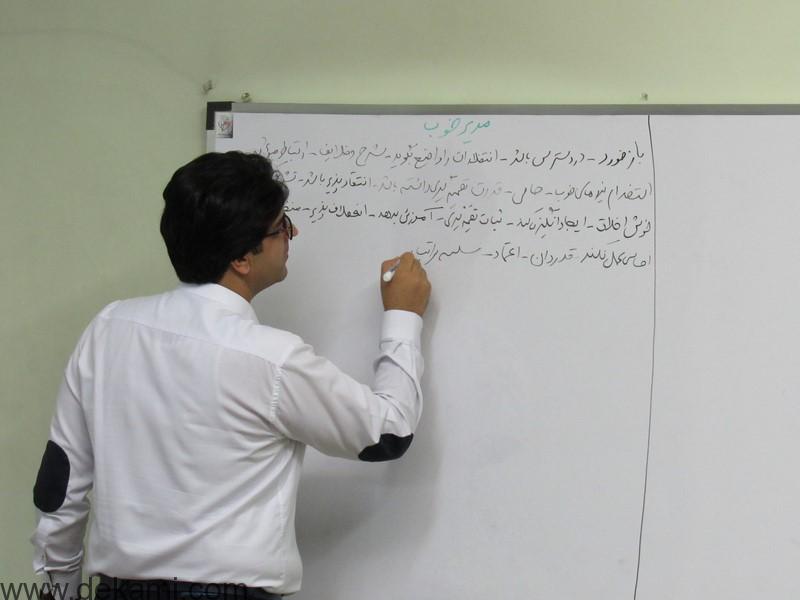 مدیر خوب
بازخورد - در دسترس باشد - انتقادات را واضح بگوید - شرح وظایف - ارتباط
استخدام نیروهای خوب - حامی - قدرت تصمیم گیری داشته باشد - انتقاد پذیر باشد -
خوش اخلاق - ایجاد انگیزه کند - ثبات تصمیم گیری - آموزش بدهد - انعطاف پذیر -
قدردان - اعتماد - سلسله مراتب
www.dekami.com